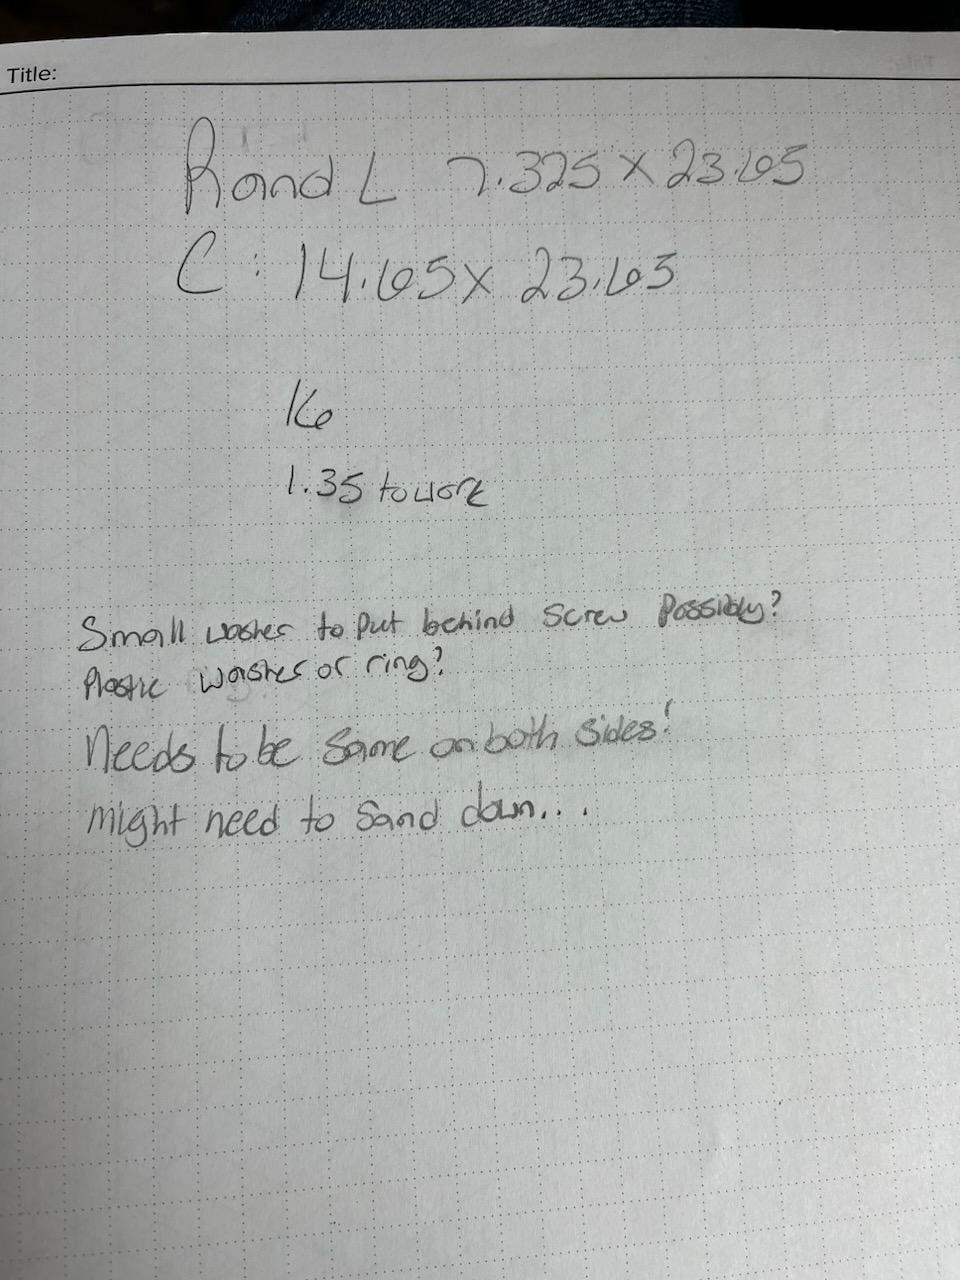 Title:
R and L 7.325 x 23.65
C: 14.65 x 23.65
16
1.35 to work
Small washer to put behind screw possibly?
Plastic washer or ring?
Needs to be same on both sides!
might need to sand down...